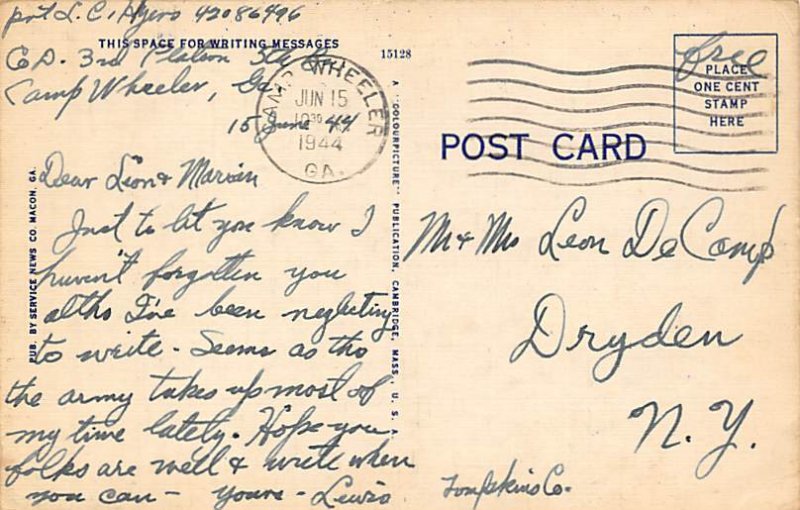 pvt L. C. Myers 42086496
THIS SPACE FOR WRITING MESSAGES
Co D. 3rd Platoon
Camp Wheeler, Ga
15 June 44
Dear Leon & Marvin
Just to let you know I
haven't forgotten you
altho I've been neglecting
to write - Seems as tho
the army takes up most of
my time lately. Hope you
folks are well & write when
you can - yours - Lewis
PUB. BY SERVICE NEWS CO. MACON, GA.
15128
A "COLOURPICTURE" PUBLICATION, CAMBRIDGE, MASS., U. S. A.
CAMP WHEELER
JUN 15
1944
GA.
POST CARD
free
PLACE
ONE CENT
STAMP
HERE
Mr & Mrs Leon De Camp
Dryden
N. Y.
Tompkins Co.